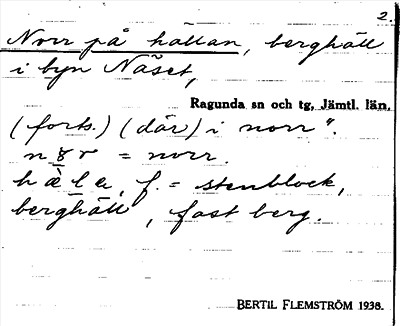 2.
Norr på hallan, berghäll
i byn Näset,
Ragunda sn och tg, Jämtl. län.
(forts.) (där) i norr".
= norr.
f. = stenblock,
berghäll, fast berg.
BERTIL FLEMSTRÖM 1938.